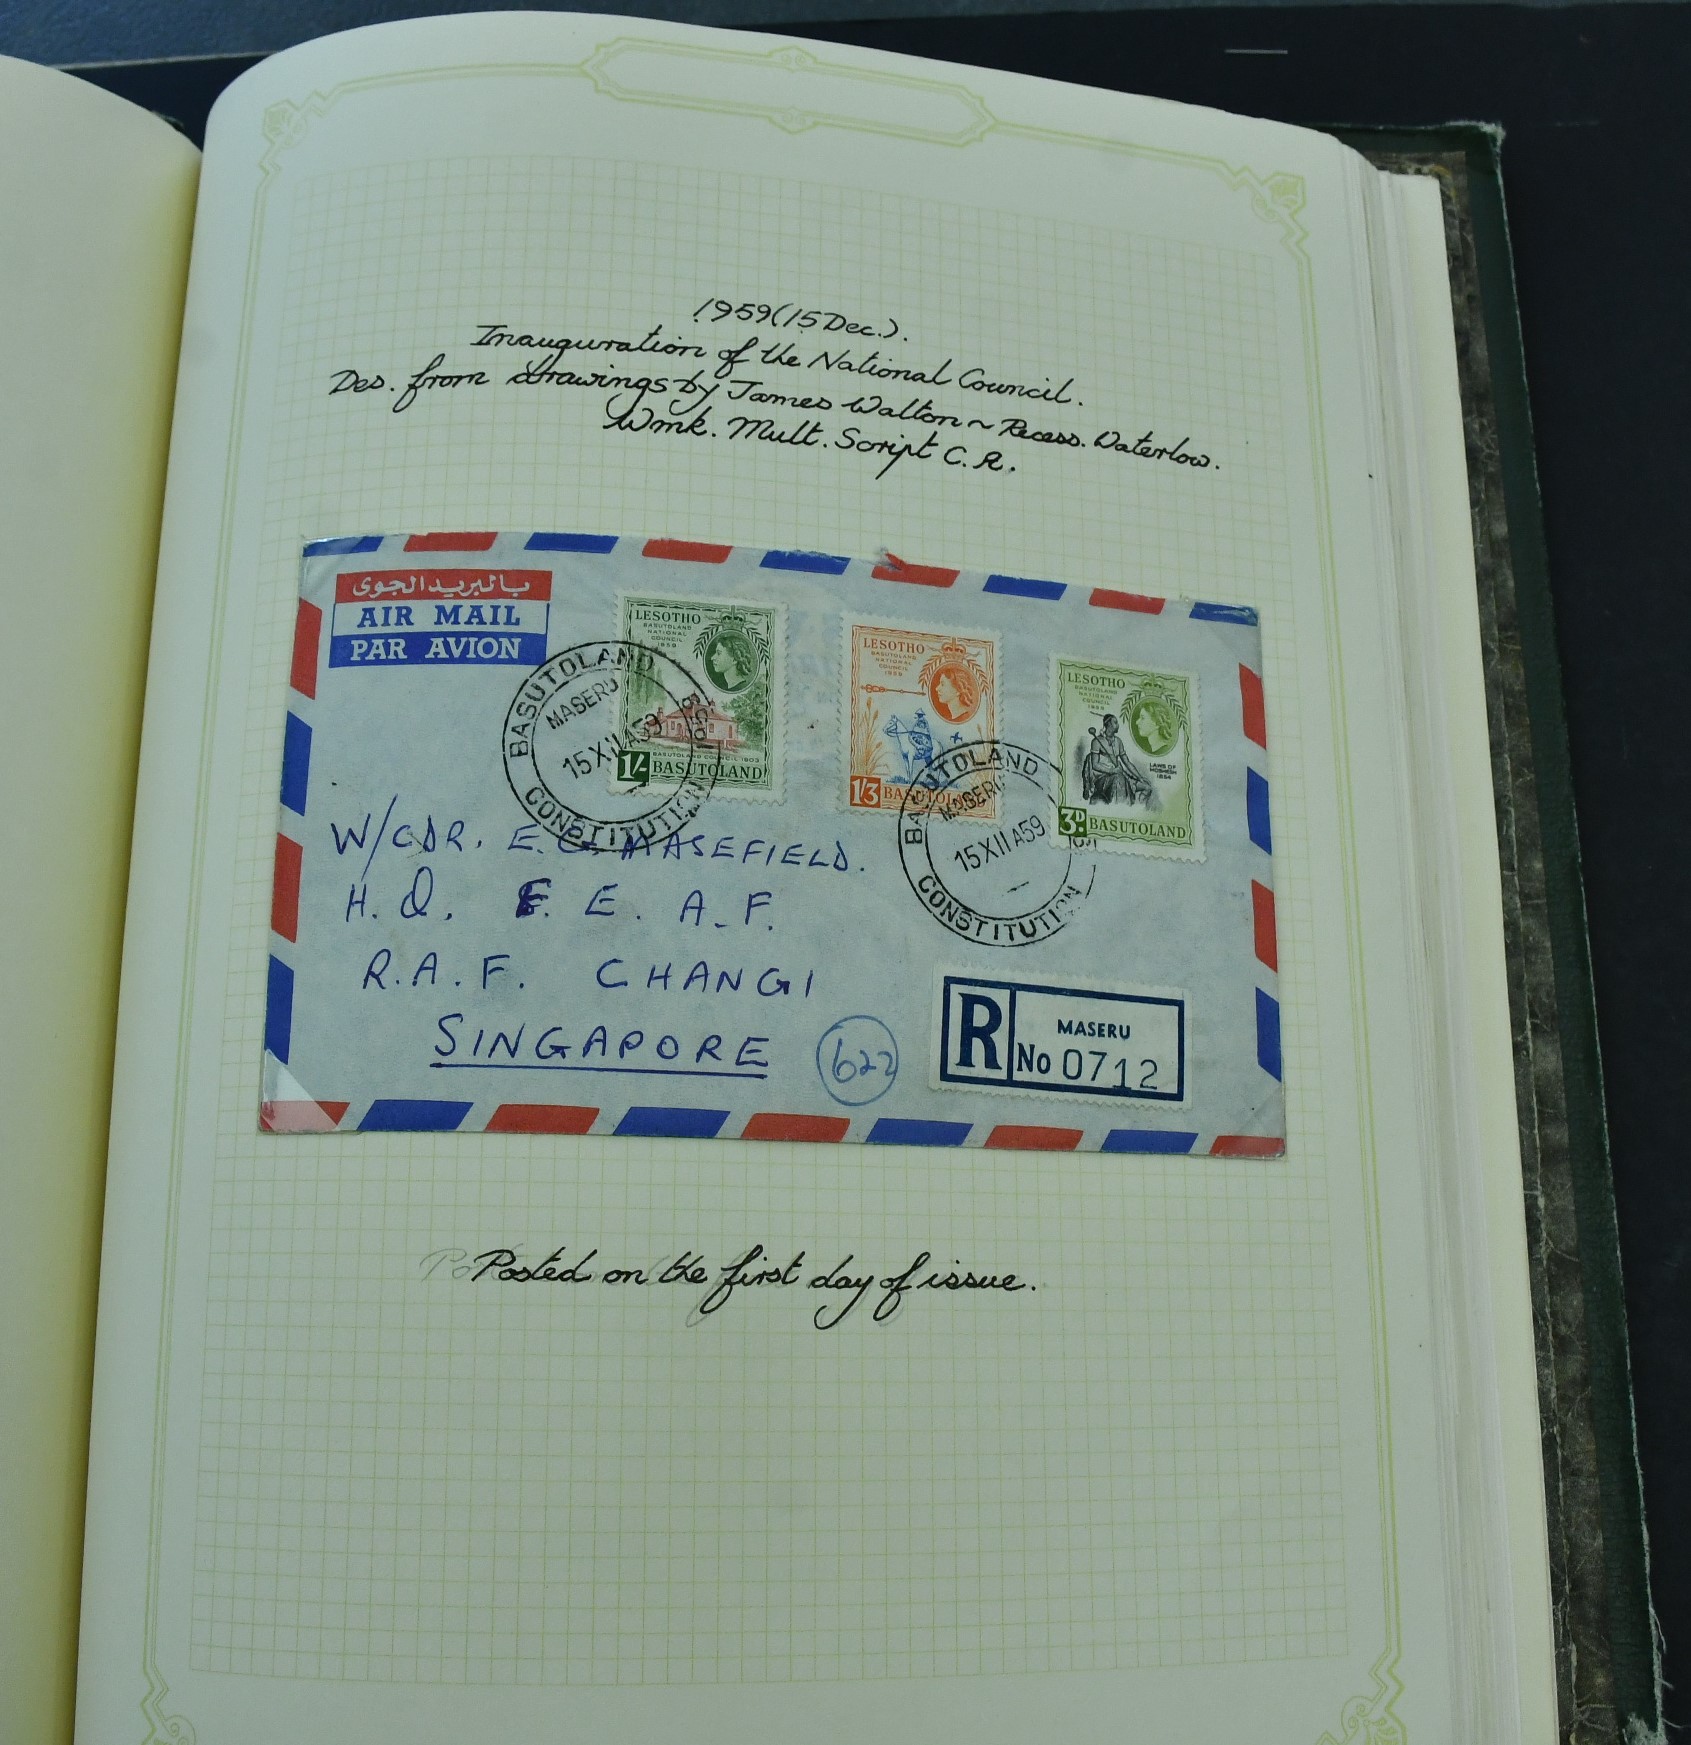 1959 (15 Dec.).
Inauguration of the National Council.
Des. from drawings by James Walton ~ Recess. Waterlow.
Wmk. Mult. Script C.A.
بالبريد الجوى
AIR MAIL
PAR AVION
LESOTHO
BASUTOLAND
NATIONAL
COUNCIL
1959
BASUTOLAND COUNCIL 1903
1/- BASUTOLAND
LESOTHO
BASUTOLAND
NATIONAL
COUNCIL
1959
1/3 BASUTOLAND
LESOTHO
BASUTOLAND
NATIONAL
COUNCIL
1959
LAWS OF
MOSHESH
1854
3D. BASUTOLAND
BASUTOLAND
MASERU
15 XII A59
CONSTITUTION
BASUTOLAND
MASERU
15 XII A59
CONSTITUTION
W/CDR. E. C. MASEFIELD.
H. Q. F. E. A. F.
R. A. F. CHANGI
SINGAPORE
622
R
MASERU
No 0712
Posted on the first day of issue.